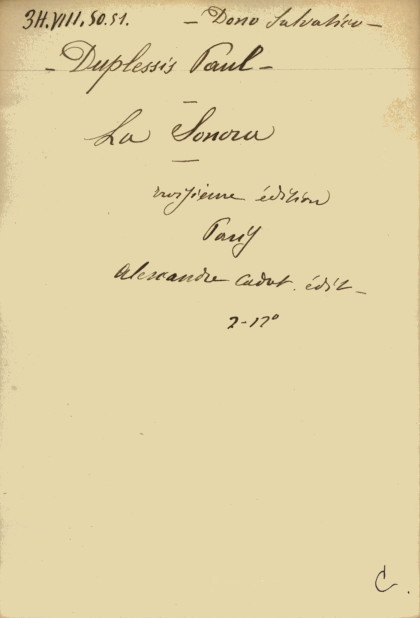 3H.VIII.50.51. – Dono Salvatico –
– Duplessis Paul –
–
La Sonora
–
troisieme édition
Paris
Alexandre Cadot. édit –
2-12°
C.